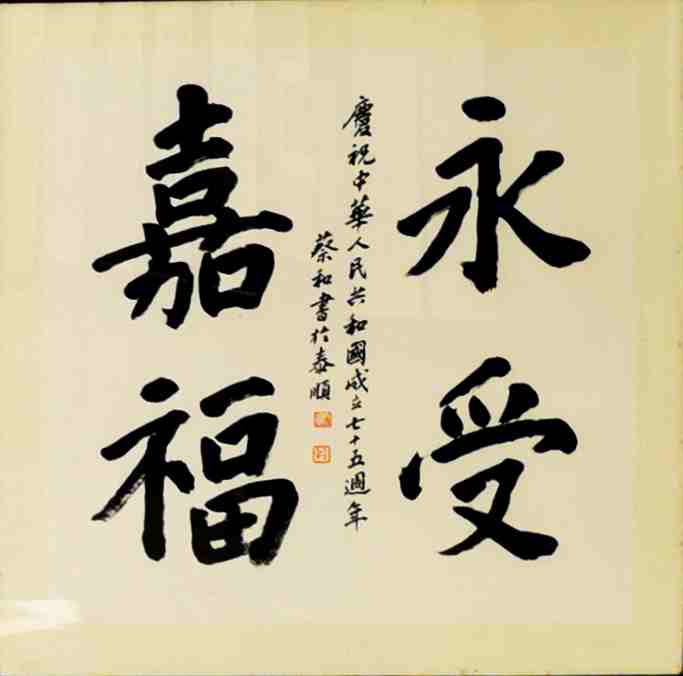 永受
嘉福
慶祝中華人民共和國成立七十五週年
蔡和書於泰順